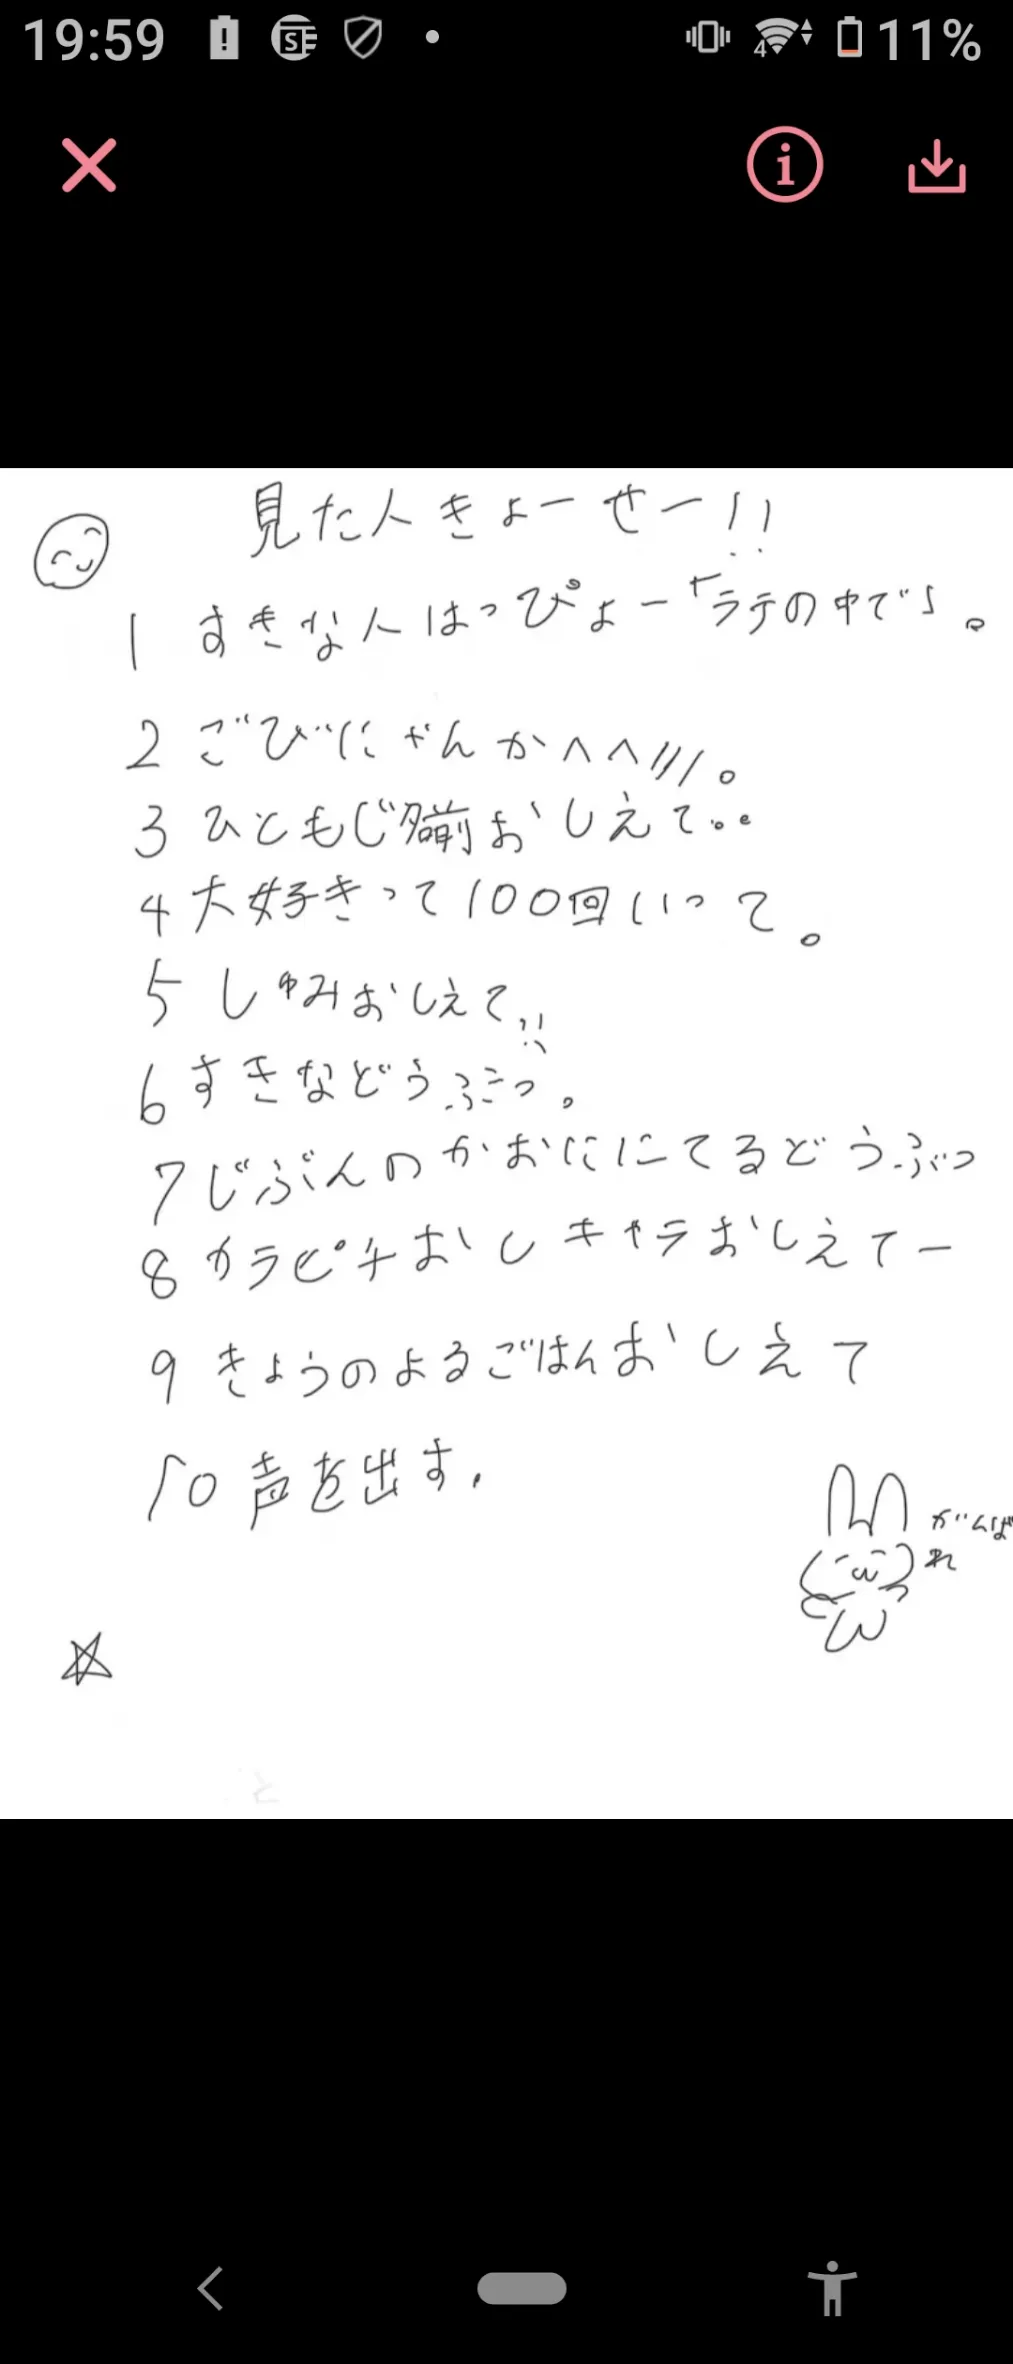 19:59 11%
見た人きょーせー!!
1 すきな人はっぴょー「ラテの中で」。
2 ごびにゃんかへへ///。
3 ひともじ名前おしえて。。
4 大好きって100回いって。
5 しゅみおしえて!!
6 すきなどうぶつ。
7 じぶんのかおににてるどうぶつ
8 カラピチおしキャラおしえてー
9 きょうのよるごはんおしえて
10 声を出す.
がんば
れ
と